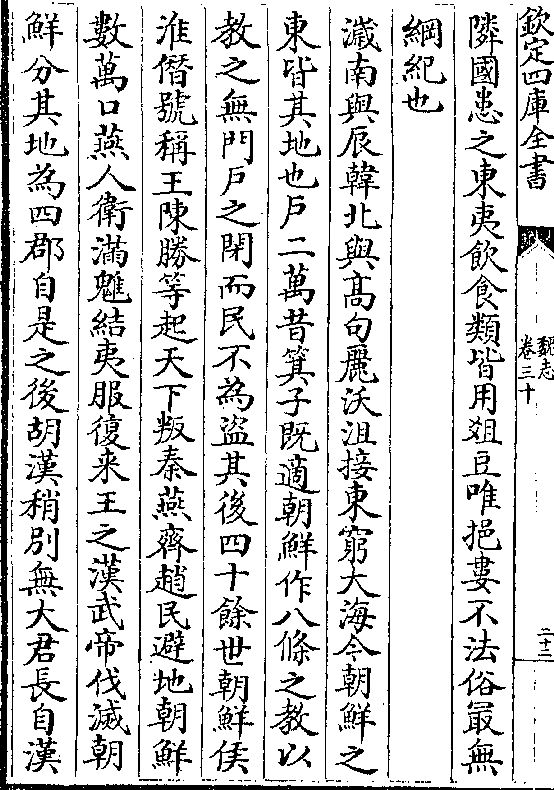 欽定四庫全書
魏志
卷三十
二十二
隣國患之東夷飲食類皆用爼豆唯挹婁不法俗最無
綱紀也
濊南與辰韓北與髙句麗沃沮接東窮大海今朝鮮之
東皆其地也户二萬昔箕子既適朝鮮作八條之教以
教之無門户之閉而民不為盗其後四十餘世朝鮮侯
淮僭號稱王陳勝等起天下叛秦燕齊趙民避地朝鮮
數萬口燕人衛滿魋結夷服復来王之漢武帝伐滅朝
鮮分其地為四郡自是之後胡漢稍別無大君長自漢